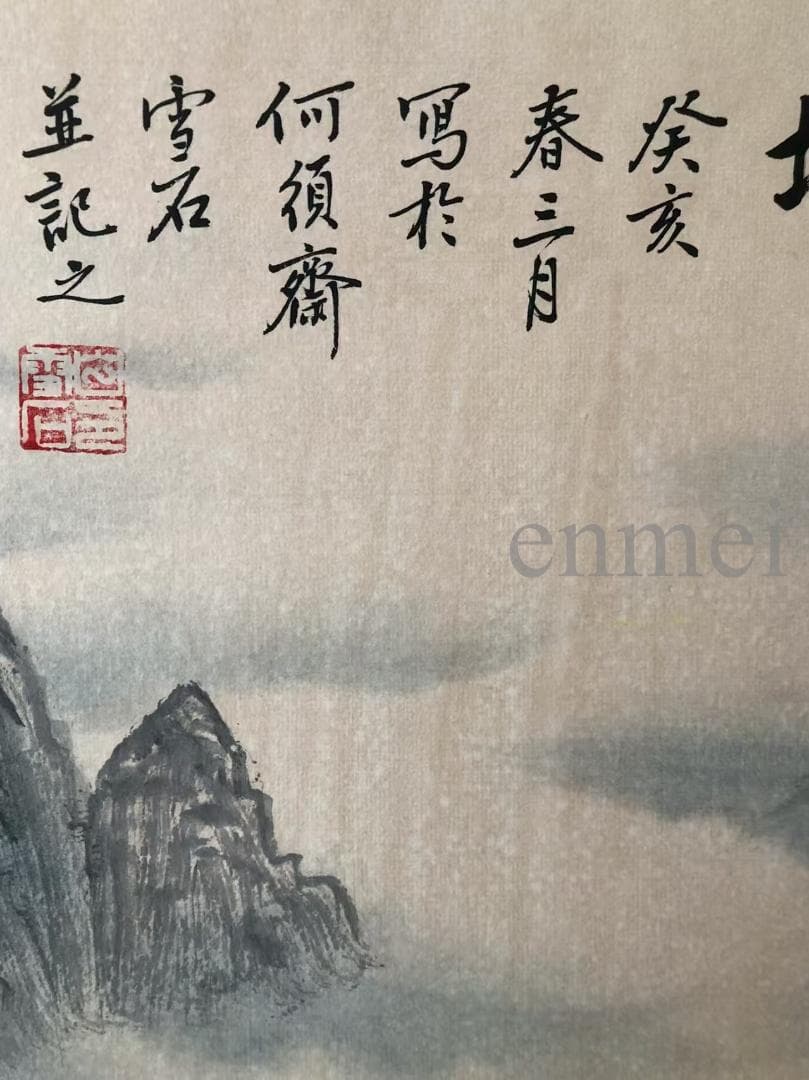 癸亥
春三月
寫於
何須齋
雪石
並記之
enmei